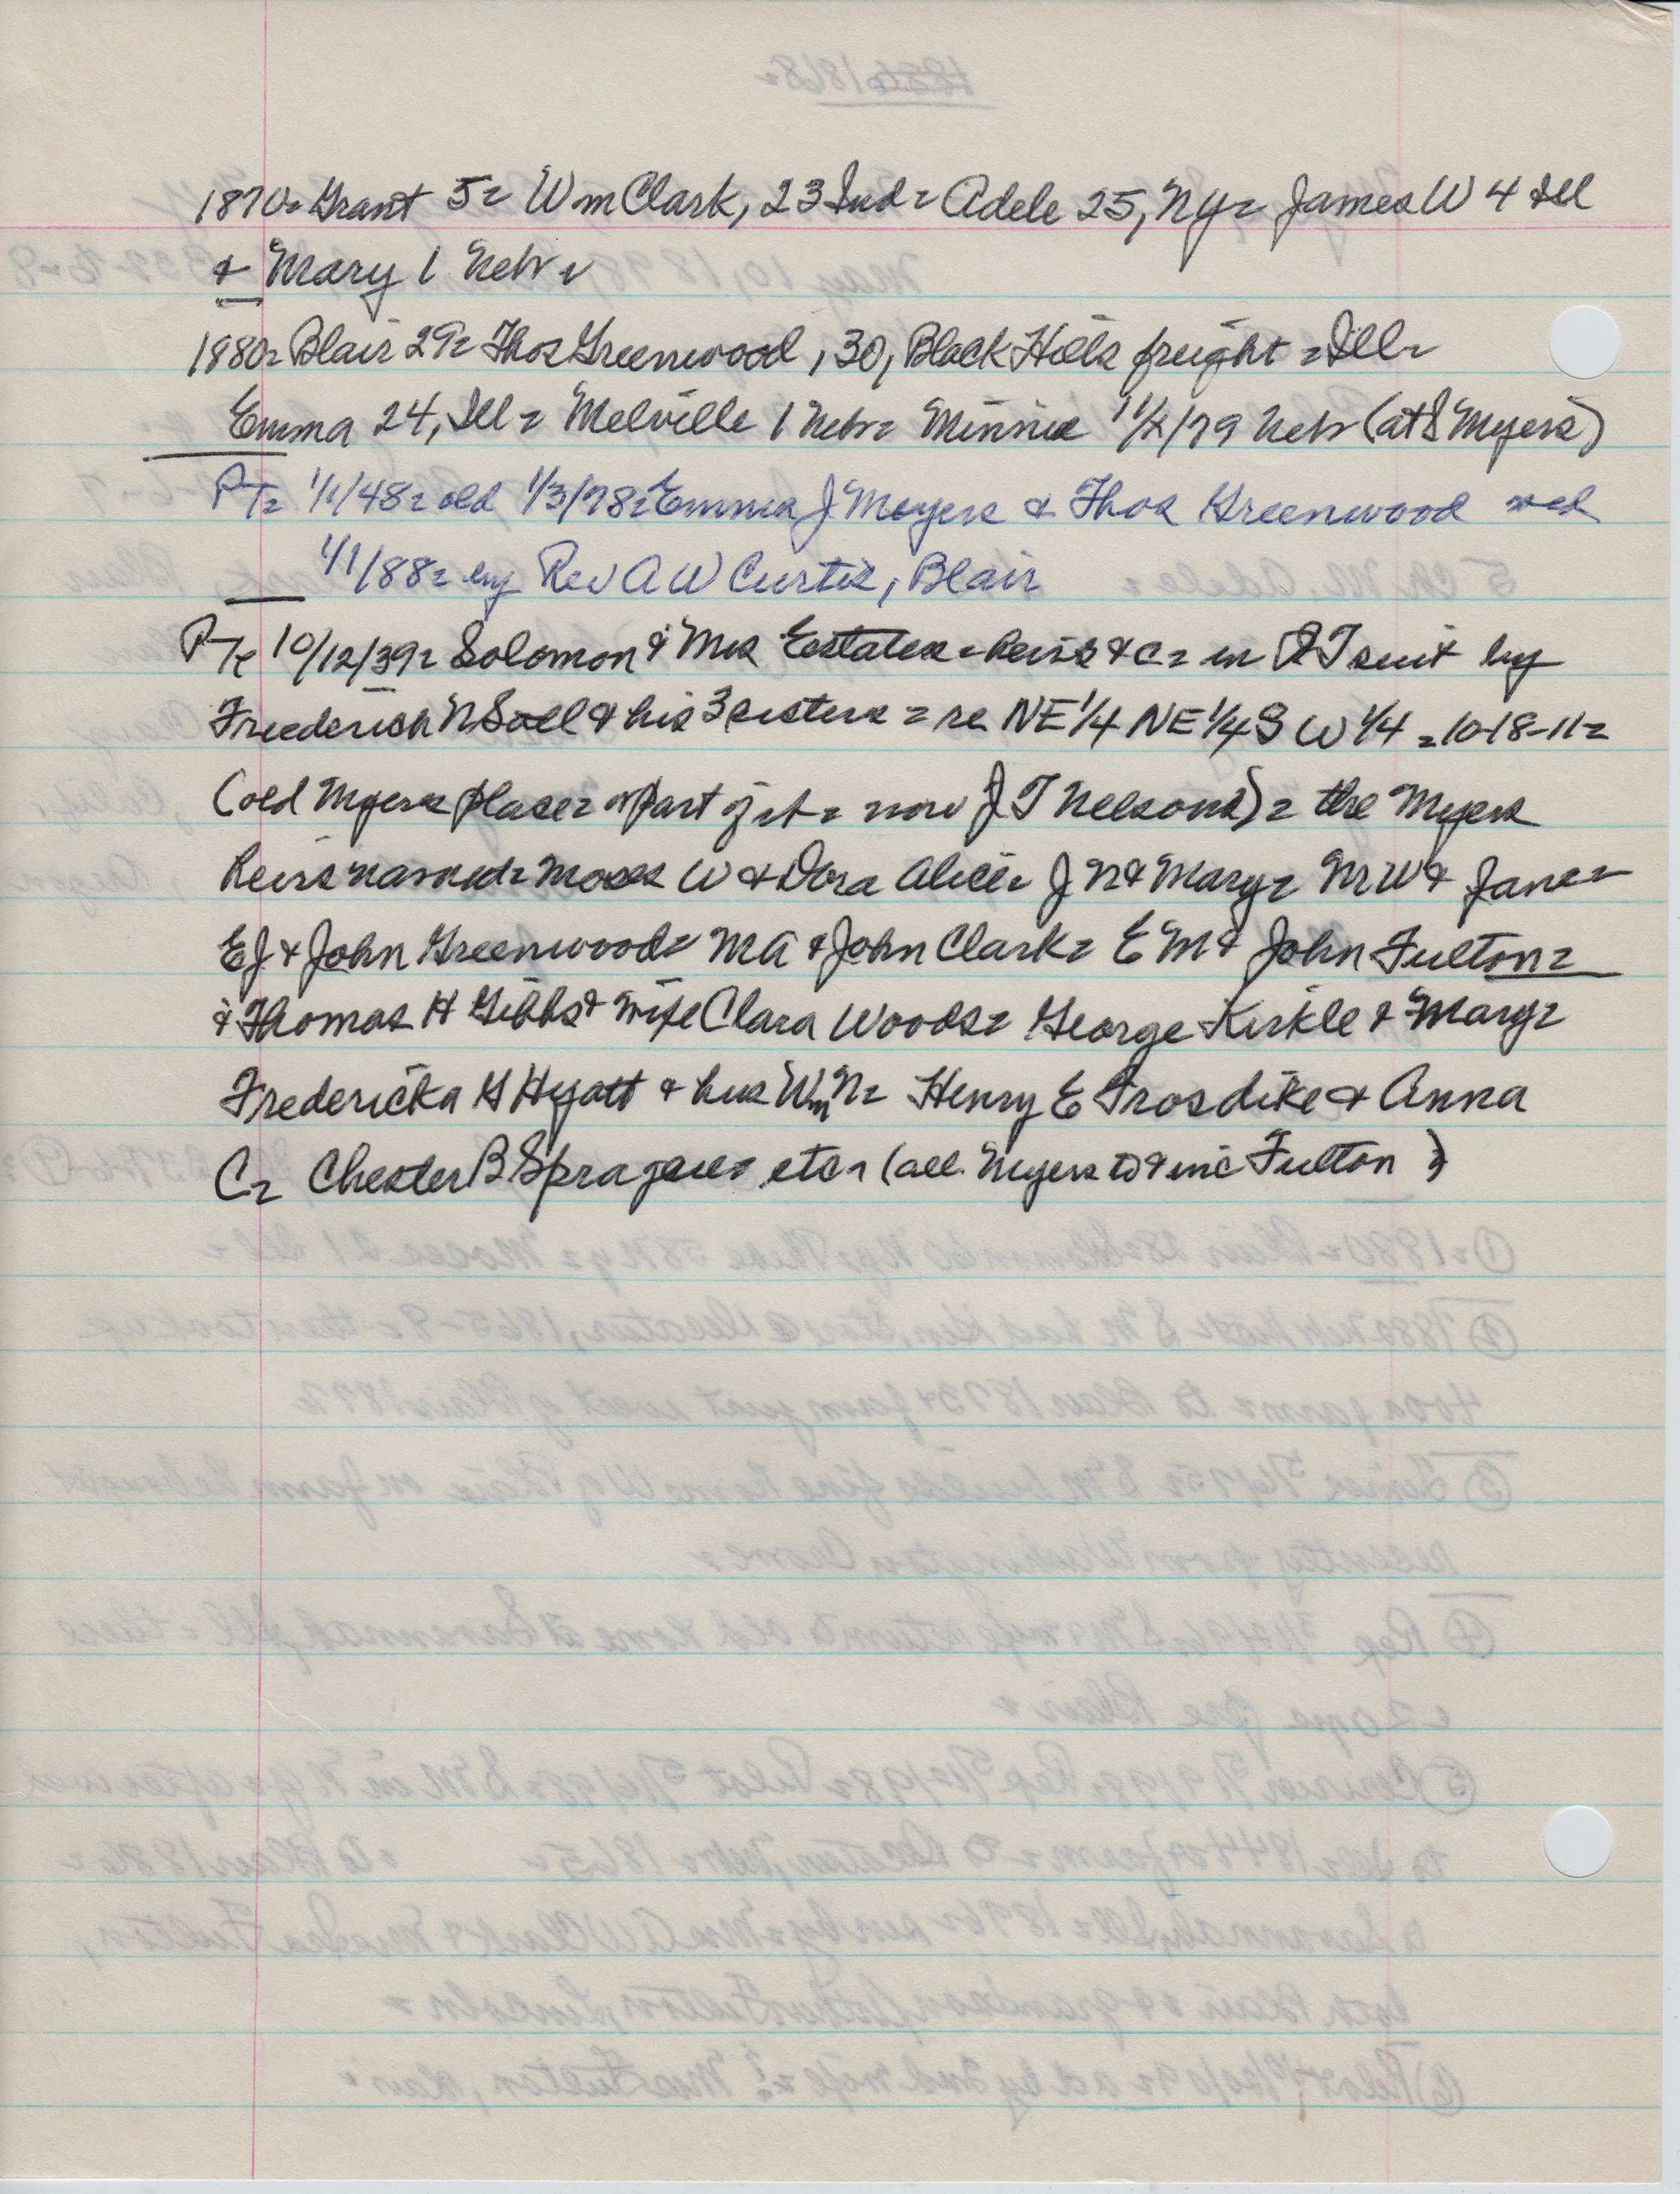 1870= Grant 5= Wm Clark, 23 Ind= Adele 25, NY= James W 4 Ill
& Mary 1 Nebr=
1880= Blair 29= Thos Greenwood, 30, Black Hills freight = Ill=
Emma 24, Ill= Melville 1 Nebr= Minnie 11/2/79 Nebr (at S Myers)
PT= 1/1/48= old 1/3/78= Emma J Meyers & Thos Greenwood wed
1/1/88= by Rev A W Curtis, Blair
PT= 10/12/39= Solomon & Mrs Estates= heirs &c= in suit by
Frederich N & his 3 sisters = re NE 1/4 NE 1/4 S W 1/4 = 10-18-11=
(old Myers place= or part of it= now J T Nelsons)= the Myers
heirs named= Moses W & Dora Alice= J N & Mary= M W & Jane=
E J & John Greenwood= M A & John Clark= E M & John Fulton=
& Thomas H Gibbs & wife Clara Woods= George Kirkle & Mary=
Fredericka H Hyatt & hus Wm N= Henry E Frosdike & Anna
C= Chester B Sprague= etc= (all Myers to & inc Fulton )